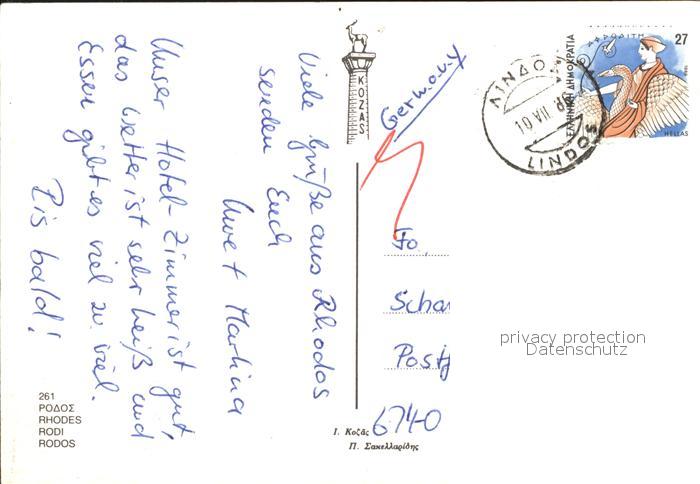 Viele Grüße aus Rhodos
senden Euch
Uwe + Martina
Unser Hotel-Zimmer ist gut,
das Wetter ist sehr heiß und
Essen gibt es viel zu viel.
Bis bald!
261
ΡΟΔΟΣ
RHODES
RODI
RODOS
KOZAS
Ι. Κοζᾶς
Π. Σακελλαρίδης
Germany
Fa.
Scha
Postf
6740
privacy protection
Datenschutz
ΛΙΝΔΟΣ
LINDOS
ΕΛΛΗΝΙΚΗ ΔΗΜΟΚΡΑΤΙΑ
ΑΦΡΟΔΙΤΗ
27
HELLAS